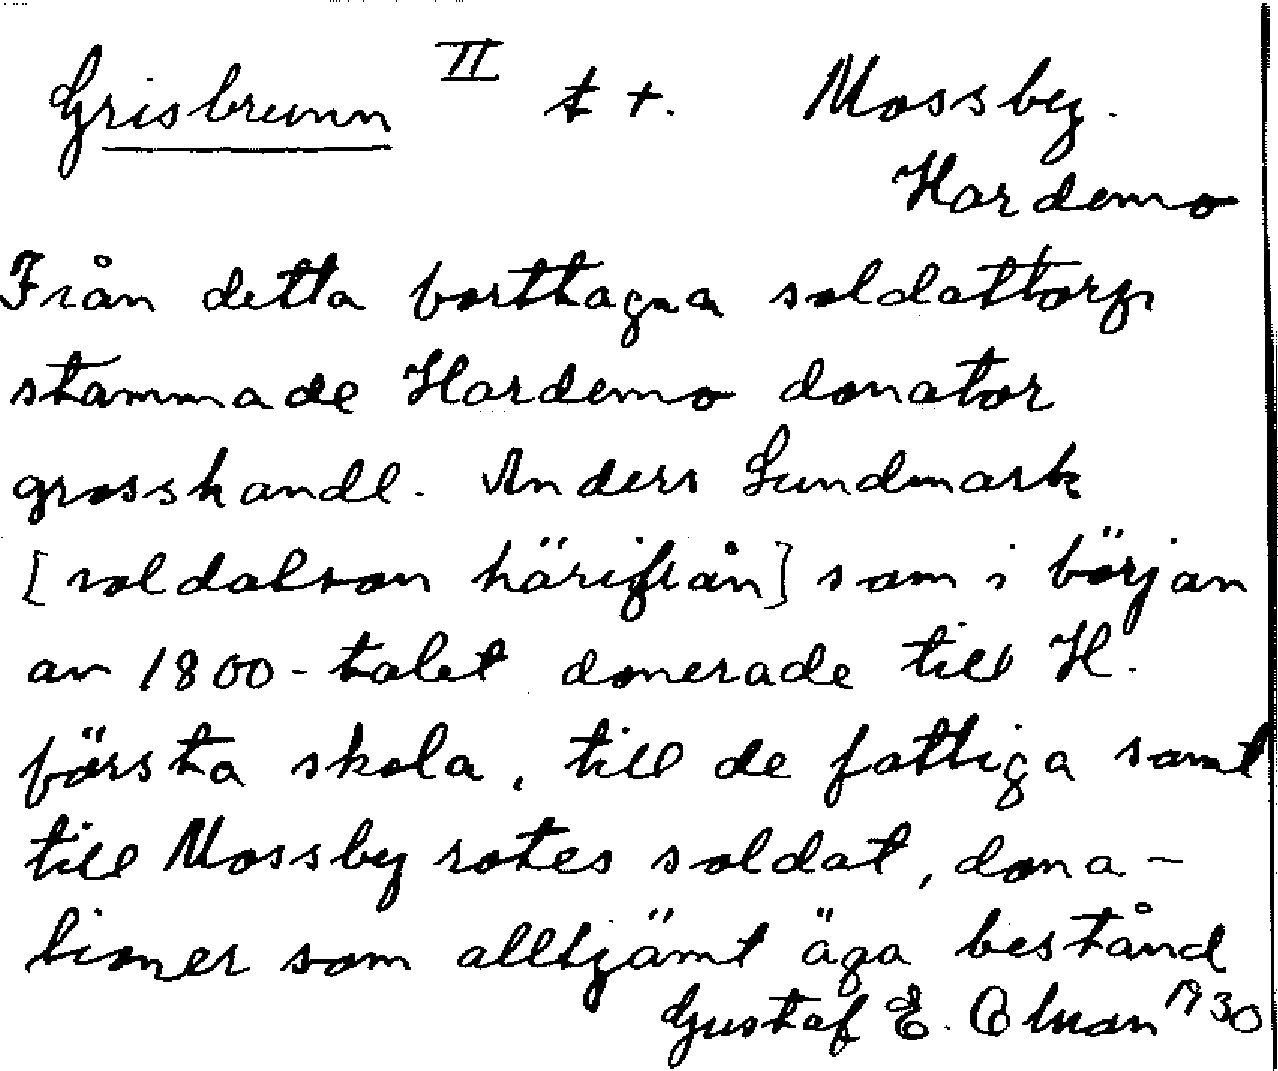 Grisbrunn II t +. Mossby.
Hardemo
Från detta borttagna soldattorp
stammade Hardemo donator
grosshandl. Anders Lundmark
[soldatson härifrån] som i början
av 1800-talet donerade till H.
första skola, till de fattiga samt
till Mossby rotes soldat, dona-
tioner som alltjämt äga bestånd
Gustaf E. Ohman 1930